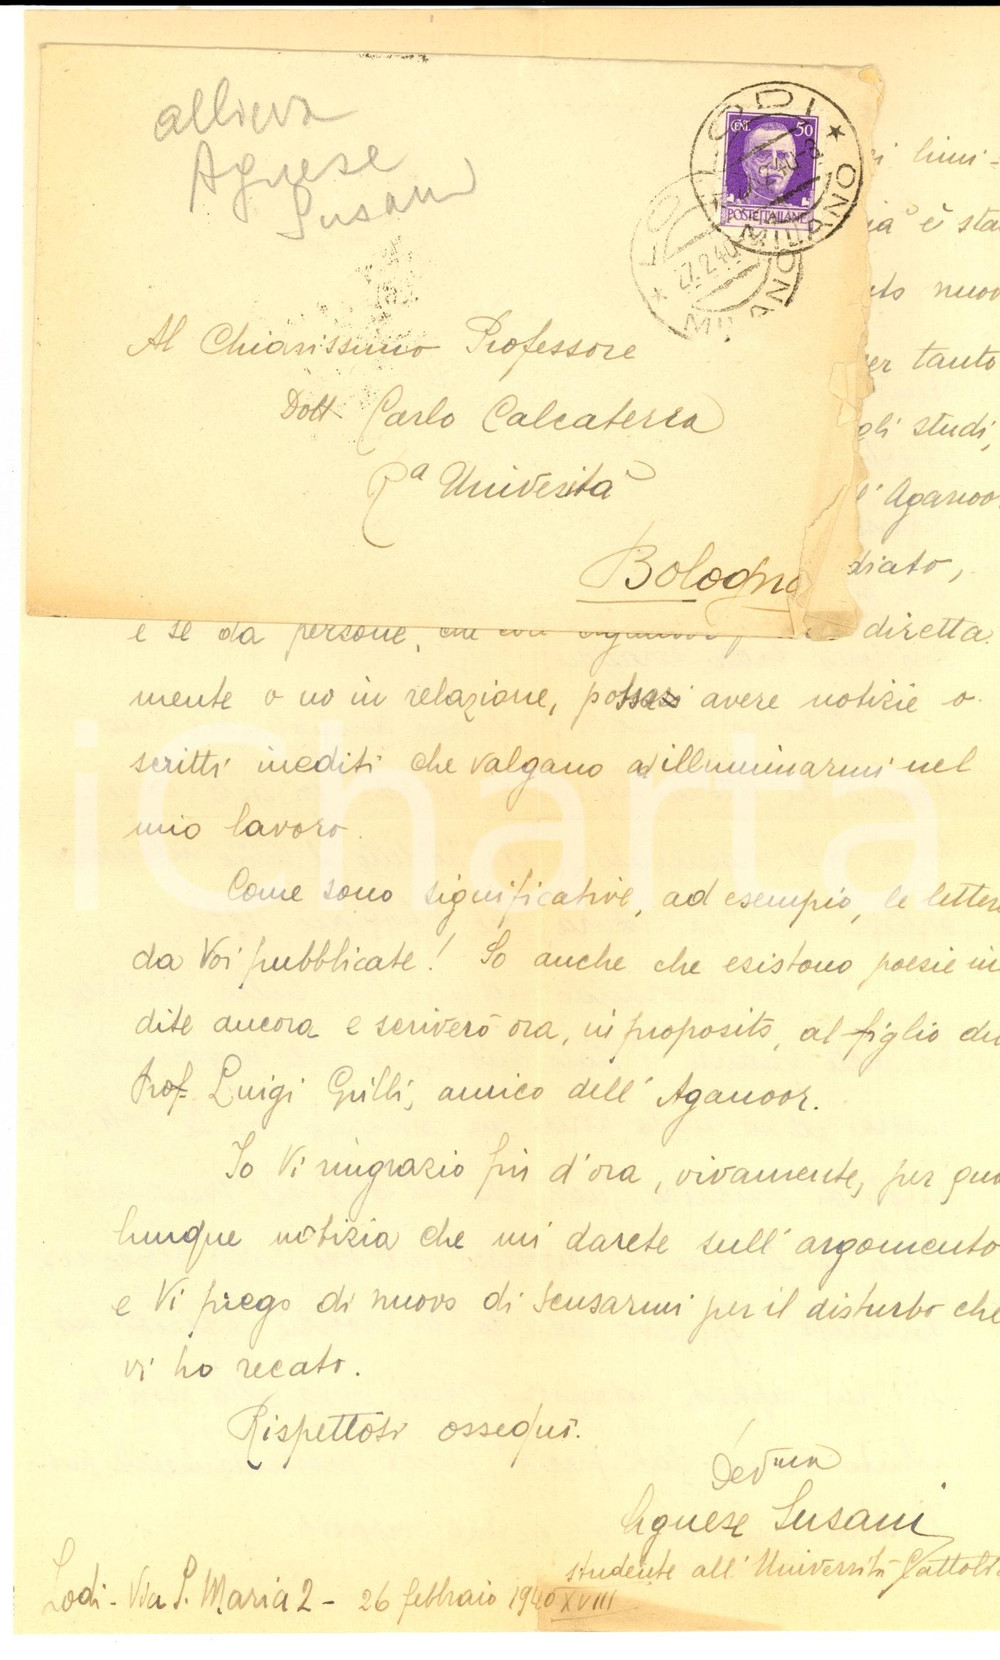 allieva
Agnese
Susani
CENT. 50
POSTE ITALIANE
LODI
MILANO
27.2.40
Al Chiarissimo Professore
Dott Carlo Calcaterra
Rª Univesità
Bologna
limi-
è sta
nuov
er tanto
gli studi,
l' Aganoor
diato,
e se da persone, diretta
mente o no in relazione, avere notizie o
scritti inediti che valgano ad illuminarmi nel
mio lavoro.
Come sono significative, ad esempio, le letter
da Voi pubblicate! So anche che esistono poesie in
dite ancora e scriverò ora, in proposito, al figlio del
Prof. Luigi Grilli, amico dell' Aganoor.
Io Vi ringrazio fin d'ora, vivamente, per qua
lunque notizia che mi darete sull' argomento
e Vi prego di nuovo di scusarmi per il disturbo che
vi ho recato.
Rispettosi ossequi.
Dev.ma
Agnese Susani
studente all' Università Cattoli
Lodi - Via S. Maria 2 - 26 febbraio 1940 XVIII
iCharta